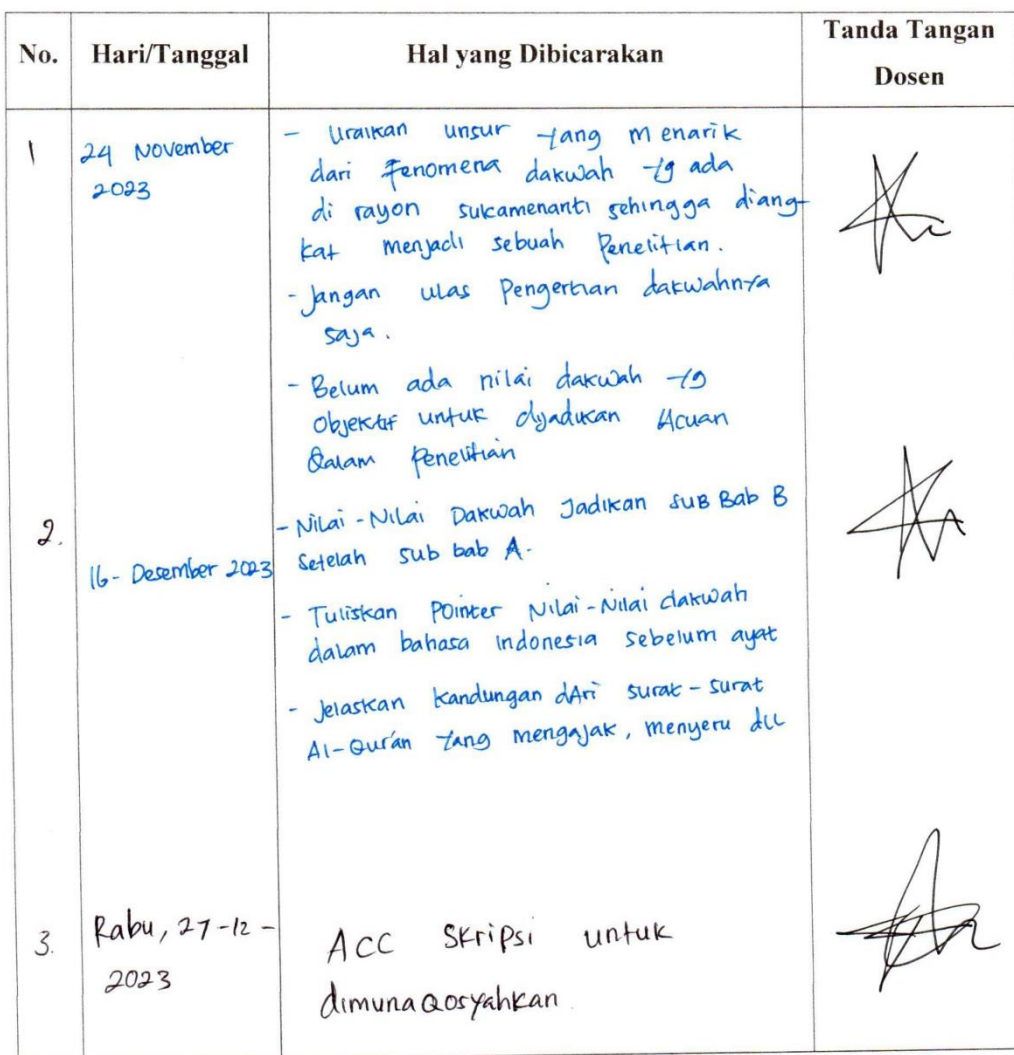 No. Hari/Tanggal Hal yang Dibicarakan Tanda Tangan Dosen
1 24 November 2023
- Uraikan unsur yang menarik
dari Fenomena dakwah yg ada
di rayon sukamenanti sehingga diang-
kat menjadi sebuah Penelitian.
- Jangan ulas Pengertian dakwahnya
saja.
- Belum ada nilai dakwah yg
Objektif untuk dijadikan Acuan
Dalam Penelitian
2. 16 - Desember 2023
- Nilai - Nilai Dakwah Jadikan SUB Bab B
Setelah Sub bab A.
- Tuliskan Pointer Nilai-Nilai dakwah
dalam bahasa indonesia sebelum ayat
- Jelaskan kandungan dAri surat - surat
Al-Qur'an yang mengajak, menyeru dll
3. Rabu, 27-12-
2023
ACC Skripsi untuk
dimunaQosyahkan.